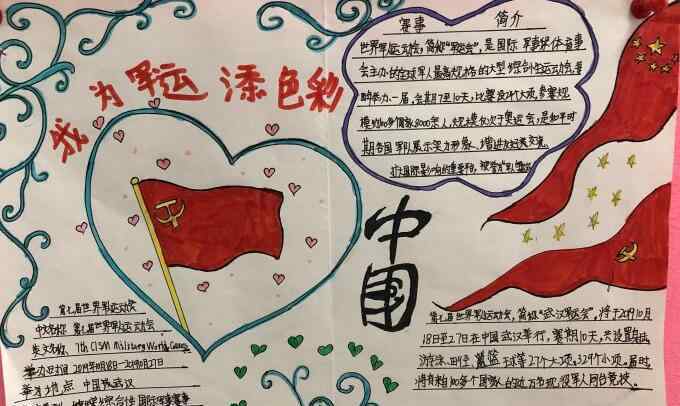 我为军运添色彩
赛事 简介
世界军人运动会，简称“军运会”，是国际军事体育理事
会主办的全球军人最高规格的大型综合性运动会，每
四年举办一届，会期7至10天，比赛设27个大项，参赛规
模约100多个国家8000余人，规模仅次于奥运会，是和平时
期各国军队展示实力形象、增进友好交流、
扩大国际影响的重要平台，被誉为“军人奥运会
中国
第七届世界军人运动会
中文名称 第七届世界军人运动会
英文名称 7th CISM Military World Games
举办时间 2019年10月18日-2019年10月27日
举办地点 中国武汉
第七届世界军人运动会，简称“武汉军运会”，将于2019年10月
18日至27日在中国武汉举行，赛期10天，共设置射击、
游泳、田径、篮球等27个大项、329个小项。届时，
将有来自100多个国家的近万名现役军人同台竞技。